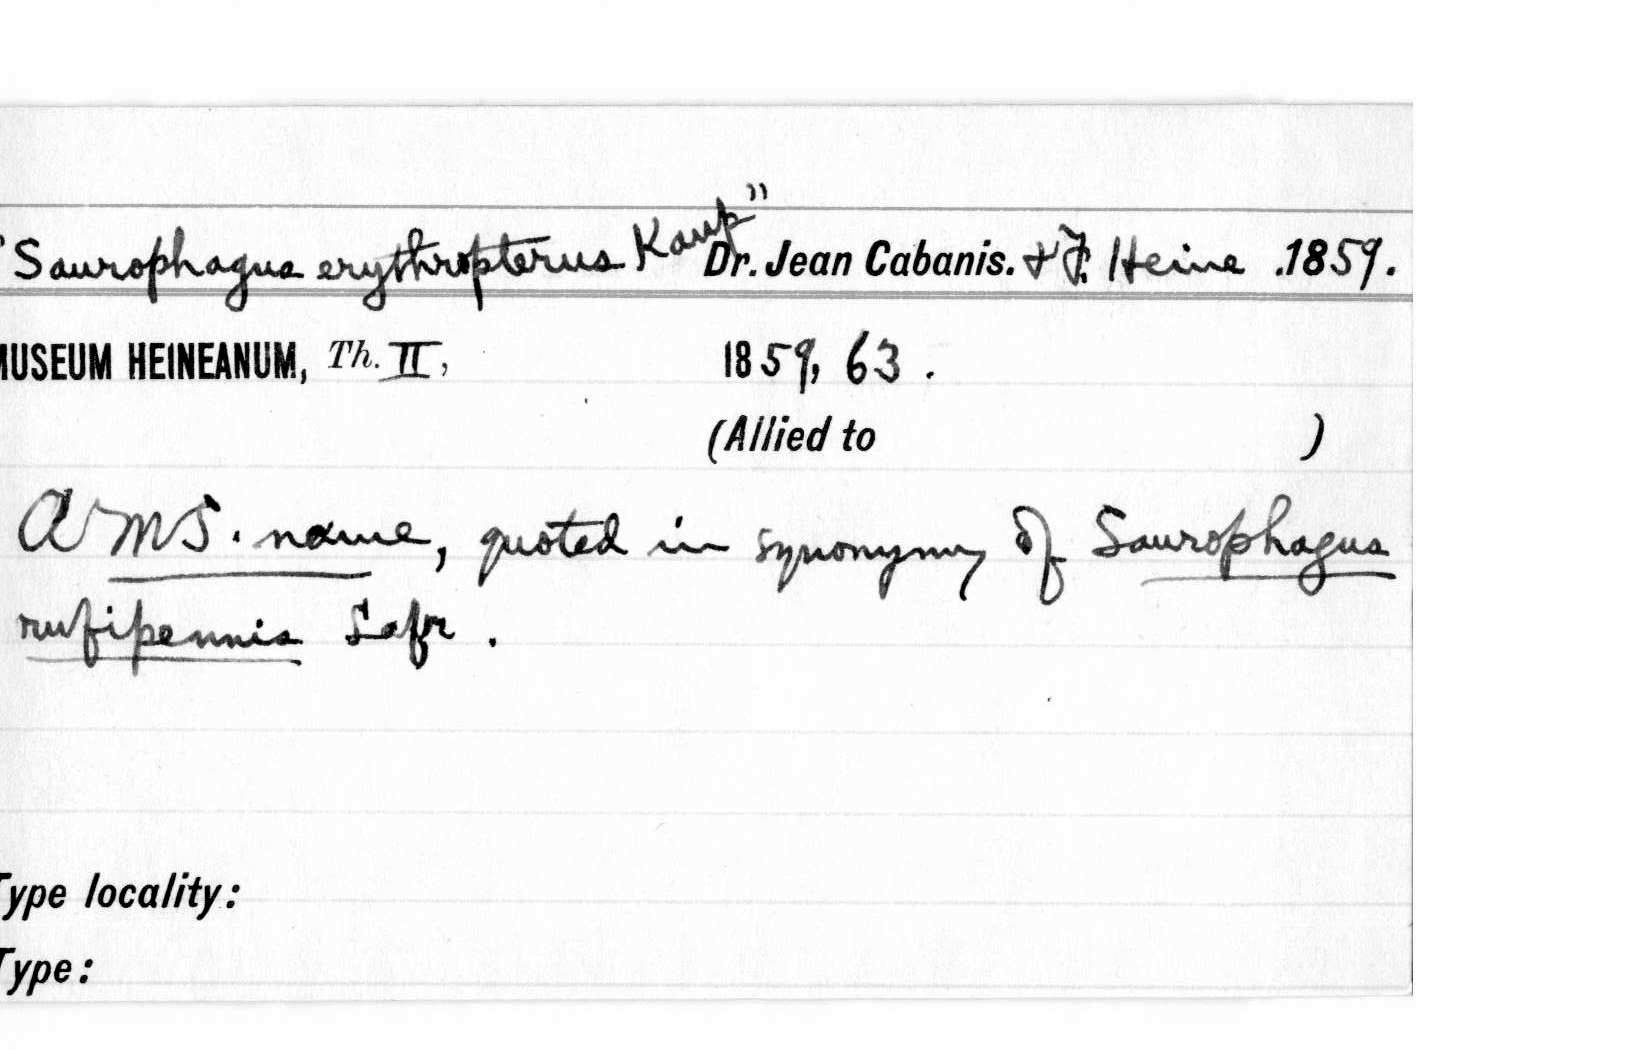 "Saurophagus erythropterus Kaup" Dr. Jean Cabanis. & F. Heine .1859.
MUSEUM HEINEANUM, Th. II, 1859, 63 .
(Allied to )
A MS. name, quoted in synonymy of Saurophagus
rufipennis Lafr .
Type locality:
Type: